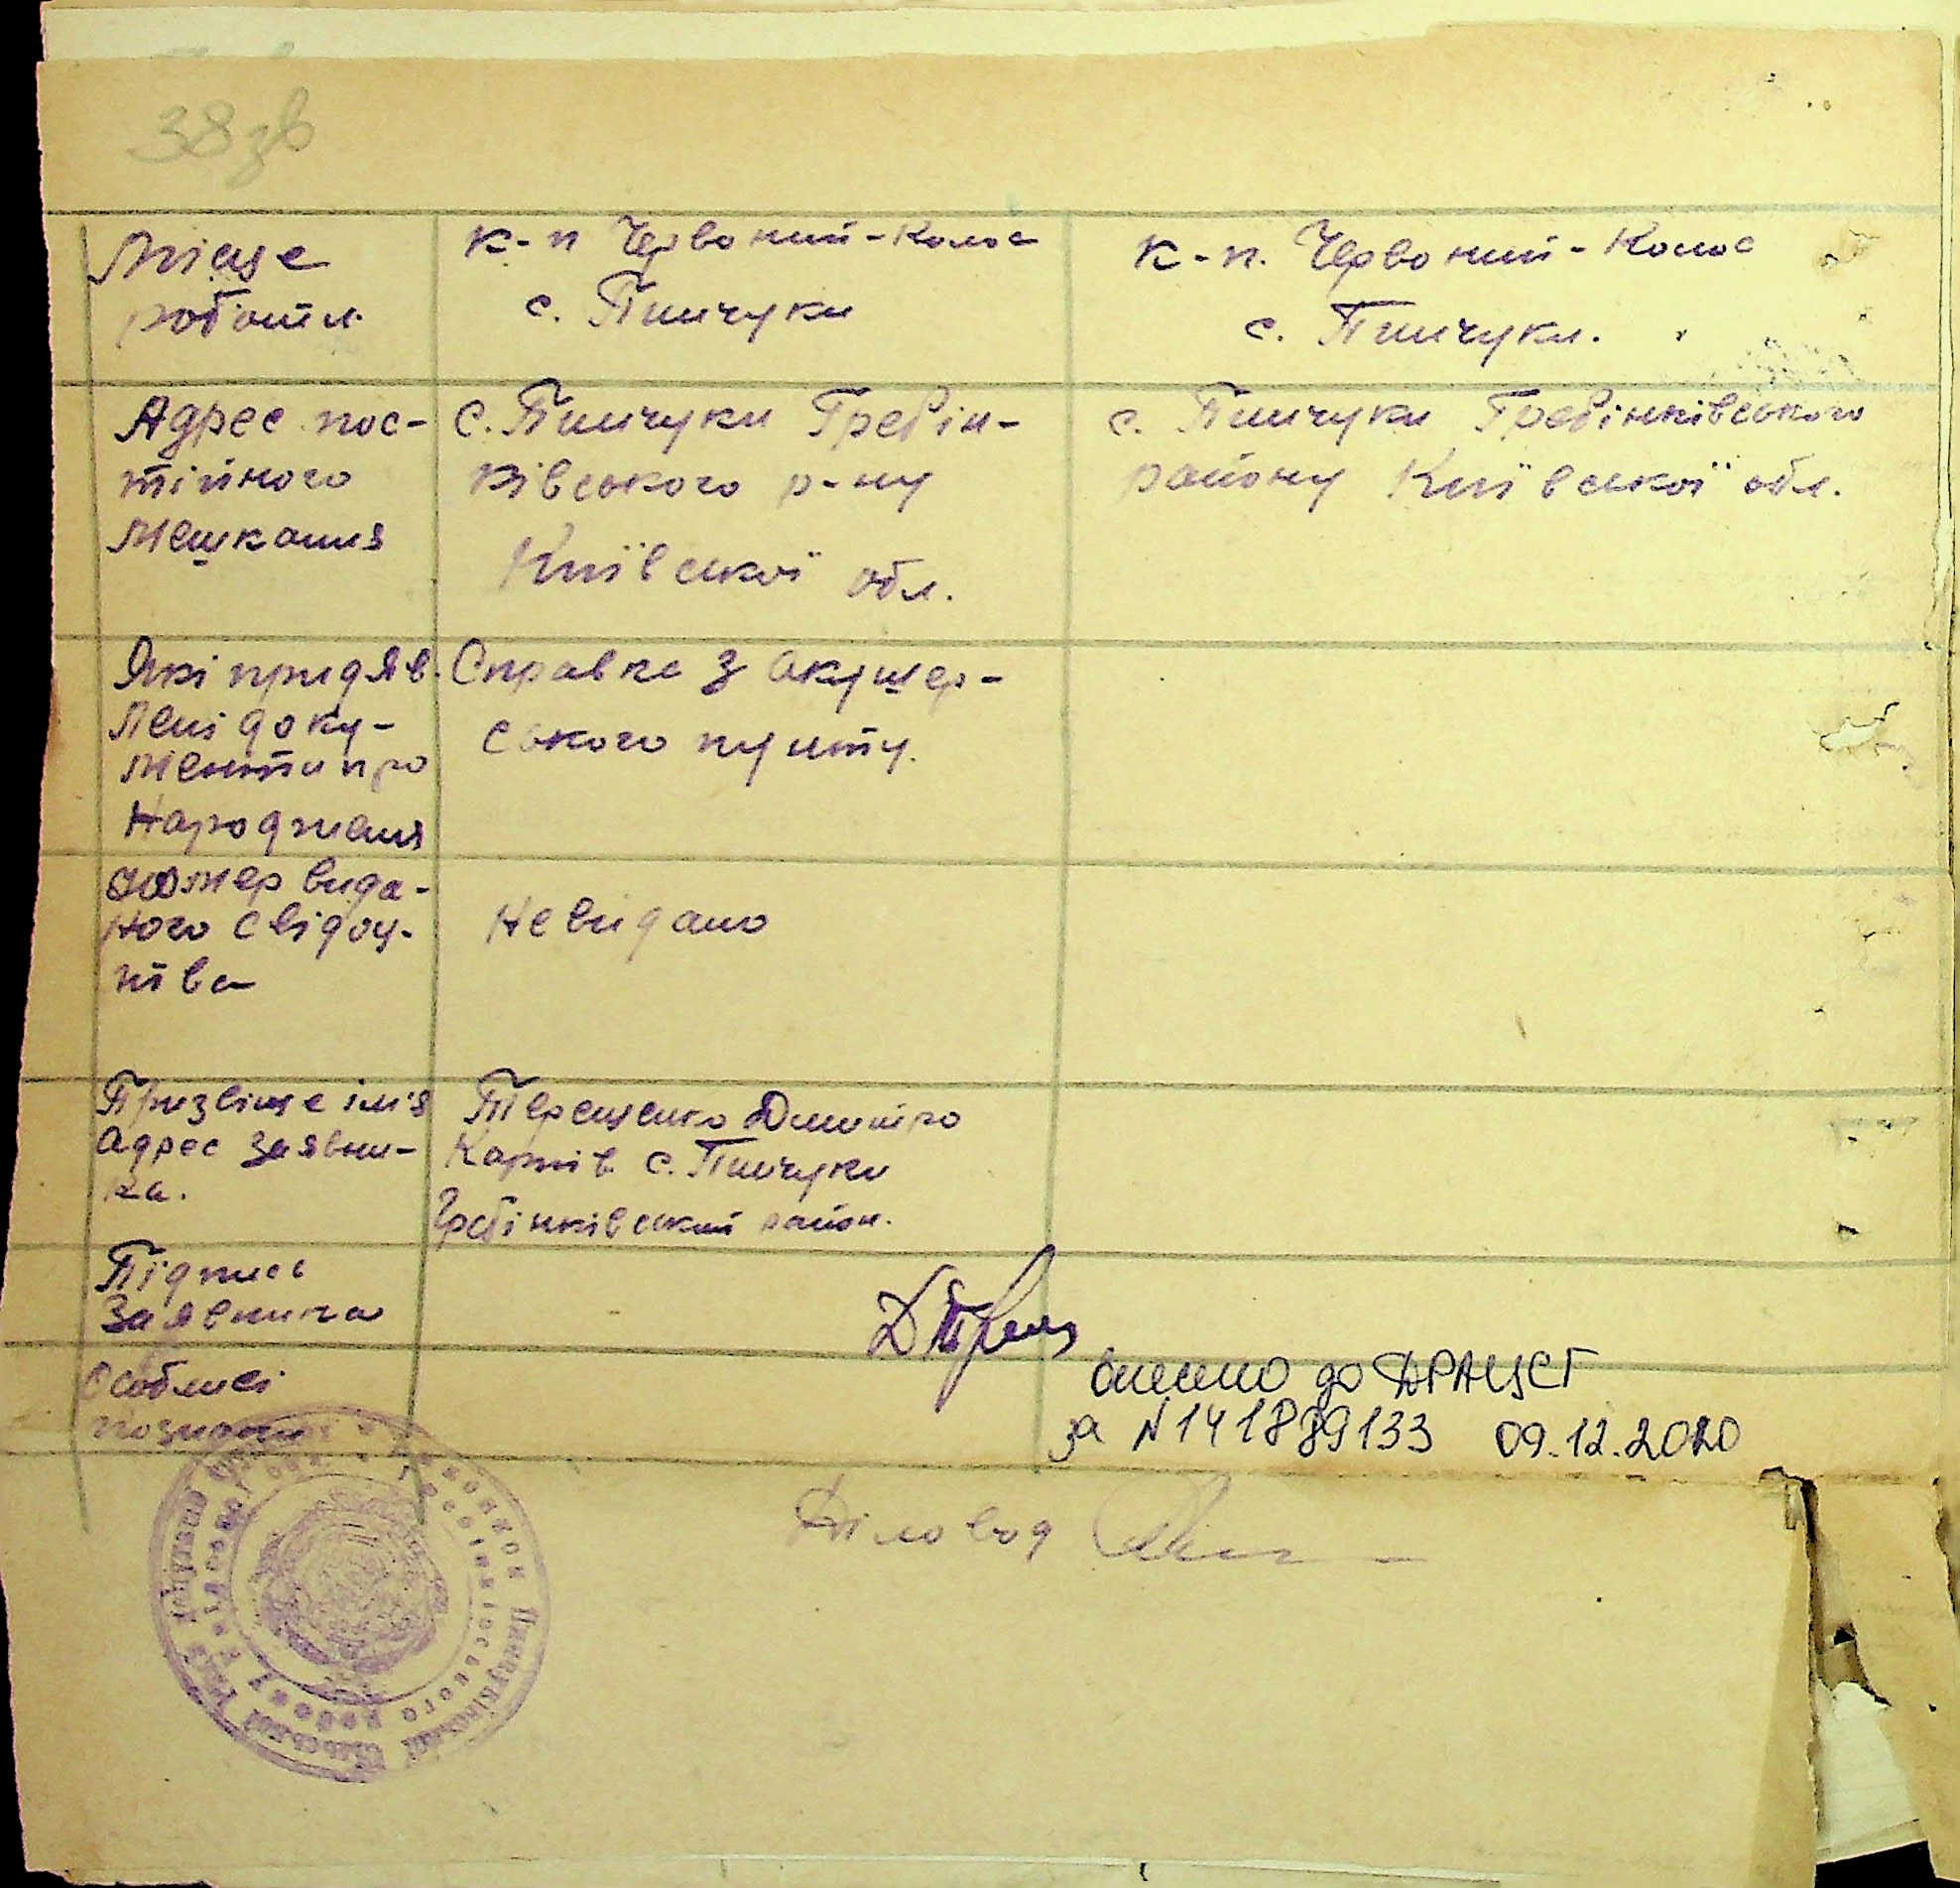 38зв
Місце
роботи
к-п Червоний-Колос
с. Пінчуки
к-п. Червоний-Колос
с. Пінчуки.
Адрес пос-
тійного
Мешкання
с. Пінчуки Гребін-
ківського р-ну
Київської обл.
с. Пінчуки Гребінківського
району Київської обл.
Які придяв-
лені доку-
менти про
Народження
Справка з акушер-
ського пункту.
номер вида-
ного свідоц-
тва
Не видано
Призвіще ім'я
адрес заявни-
ка.
Терещенко Дмитро
Карпів с. Пінчуки
Гребінківський район.
Підпись
Заявника
Особливі
познаки
внесено до ДРАЦСГ
за N 141889133 09.12.2020
Діловод